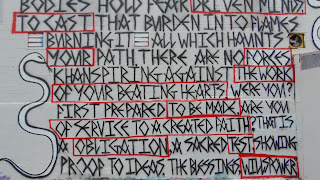 BODIES HOLD FEAR DRIVEN MINDS
TO CAST THAT BURDEN INTO FLAMES
BURNING IT ALL WHICH HAUNTS
YOUR PATH. THERE ARE NO FORCES
KHANSPIRING AGAINST THE WORK
OF YOUR BEATING HEARTS. WERE YOU?
FIRST PREPARED TO BE MADE, ARE YOU
OF SERVICE TO A CREATED FAITH? THAT IS
A OBLIGATION, A SACRED TEST SHOWING
PROOF TO IDEAS. THE BLESSINGS WILLSPOWER